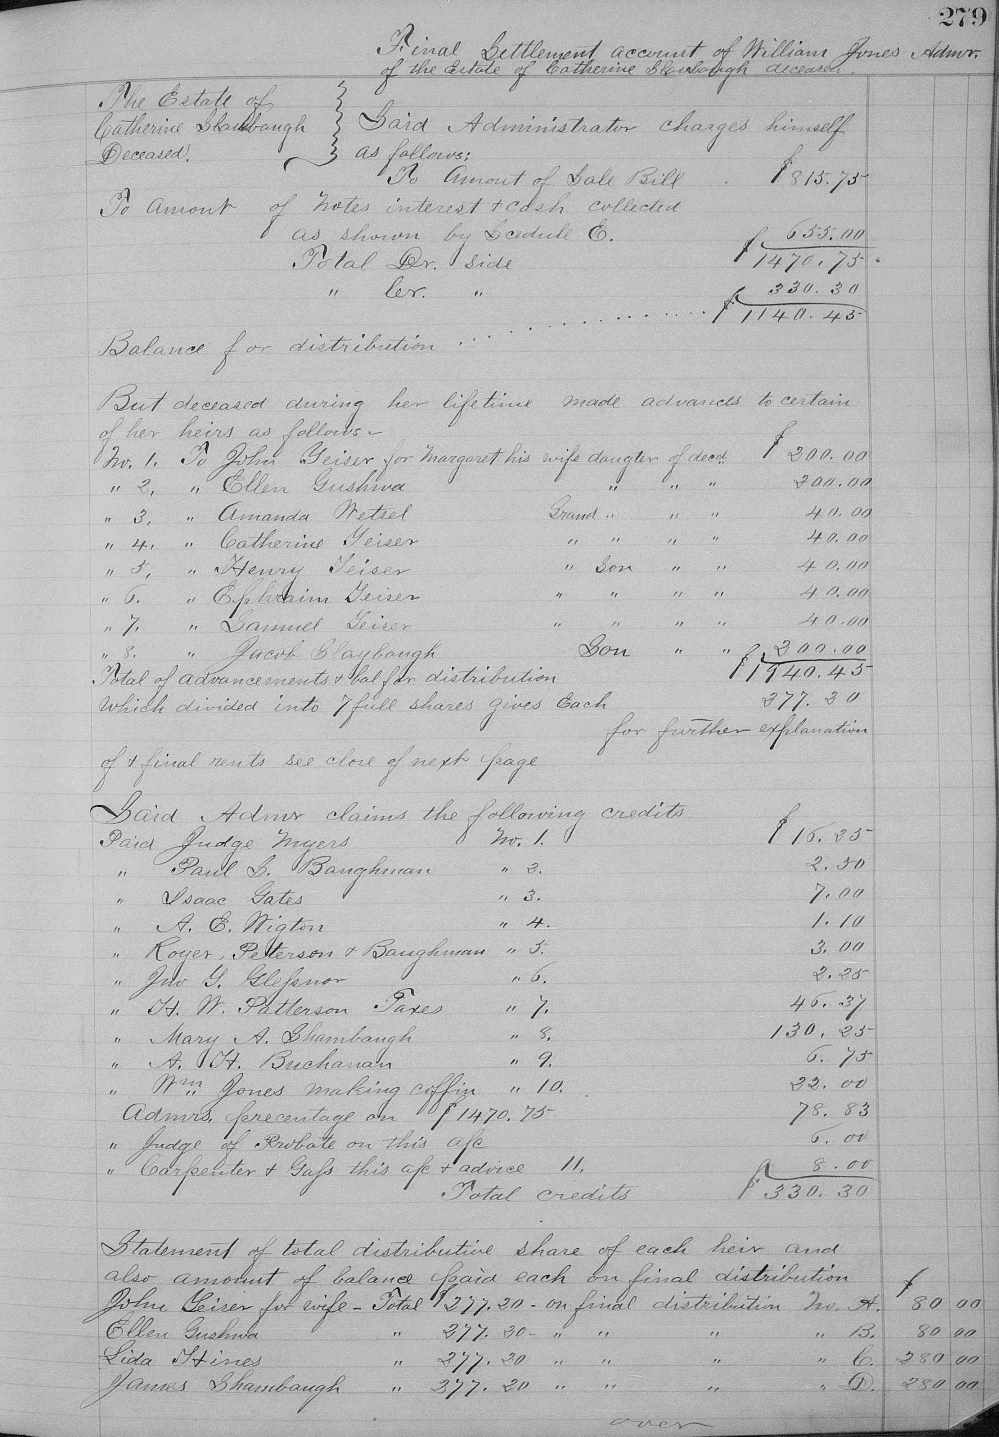 279
Final Settlement account of William Jones Admr.
of the Estate of Catherine Slambaugh deceased.
The Estate of
Catherine Slambaugh
Deceased.
Said Administrator charges himself
as follows:
To Amout of Sale Bill $815.75
To Amout of Notes interest + cash collected
as shown by Scedule E. 655.00
Total Dr. side $1470.75
" Cr. " 330.30
$1140.45
Balance for distribution
But deceased during her lifetime made advances to certain
of her heirs as follows-
No. 1. To John Geiser for Margaret his wife daugter of decd. $200.00
" 2. " Ellen Gushwa " " " 200.00
" 3. " Amanda Wetsel Grand " " " 40.00
" 4. " Catherine Geiser " " " " 40.00
" 5. " Henry Geiser " Son " " 40.00
" 6. " Ephraim Geiser " " " " 40.00
" 7. " Samuel Geiser " " " " 40.00
" 8. " Jacob Claybaugh Son " " 200.00
Total of advancements + bal for distribution $1940.45
Which divided into 7 full shares gives Each 277.20
for further explanation
of + final rents see close of next page
Said Admr claims the following credits
Paid Judge Myers No. 1. $16.25
" Paul S. Baughman " 2. 2.50
" Isaac Gates " 3. 7.00
" A. E. Wigton " 4. 1.10
" Royer, Peterson + Baughman " 5. 3.00
" Jno G. Glessnor " 6. 2.25
" H. W. Patterson Taxes " 7. 46.37
" Mary A. Shambaugh " 8. 130.25
" A. H. Buchanan " 9. 6.75
" Wm " Jones making coffin " 10. 22.00
Admrs. precentage on $1470.75 78.83
" Judge of Probate on this a/c 6.00
" Carpenter + Gass this a/c + advice 11. 8.00
Total credits $330.30
Statement of total distributive share of each heir and
also amount of balance paid each on final distribution $
John Geiser for wife - Total $277.20 - on final distribution No. A. 80 00
Ellen Gushwa " 277.20 - " " " " B. 80 00
Lida Hines " 277.20 " " " " C. 280 00
James Shambaugh " 277.20 " " " " D. 280 00
over